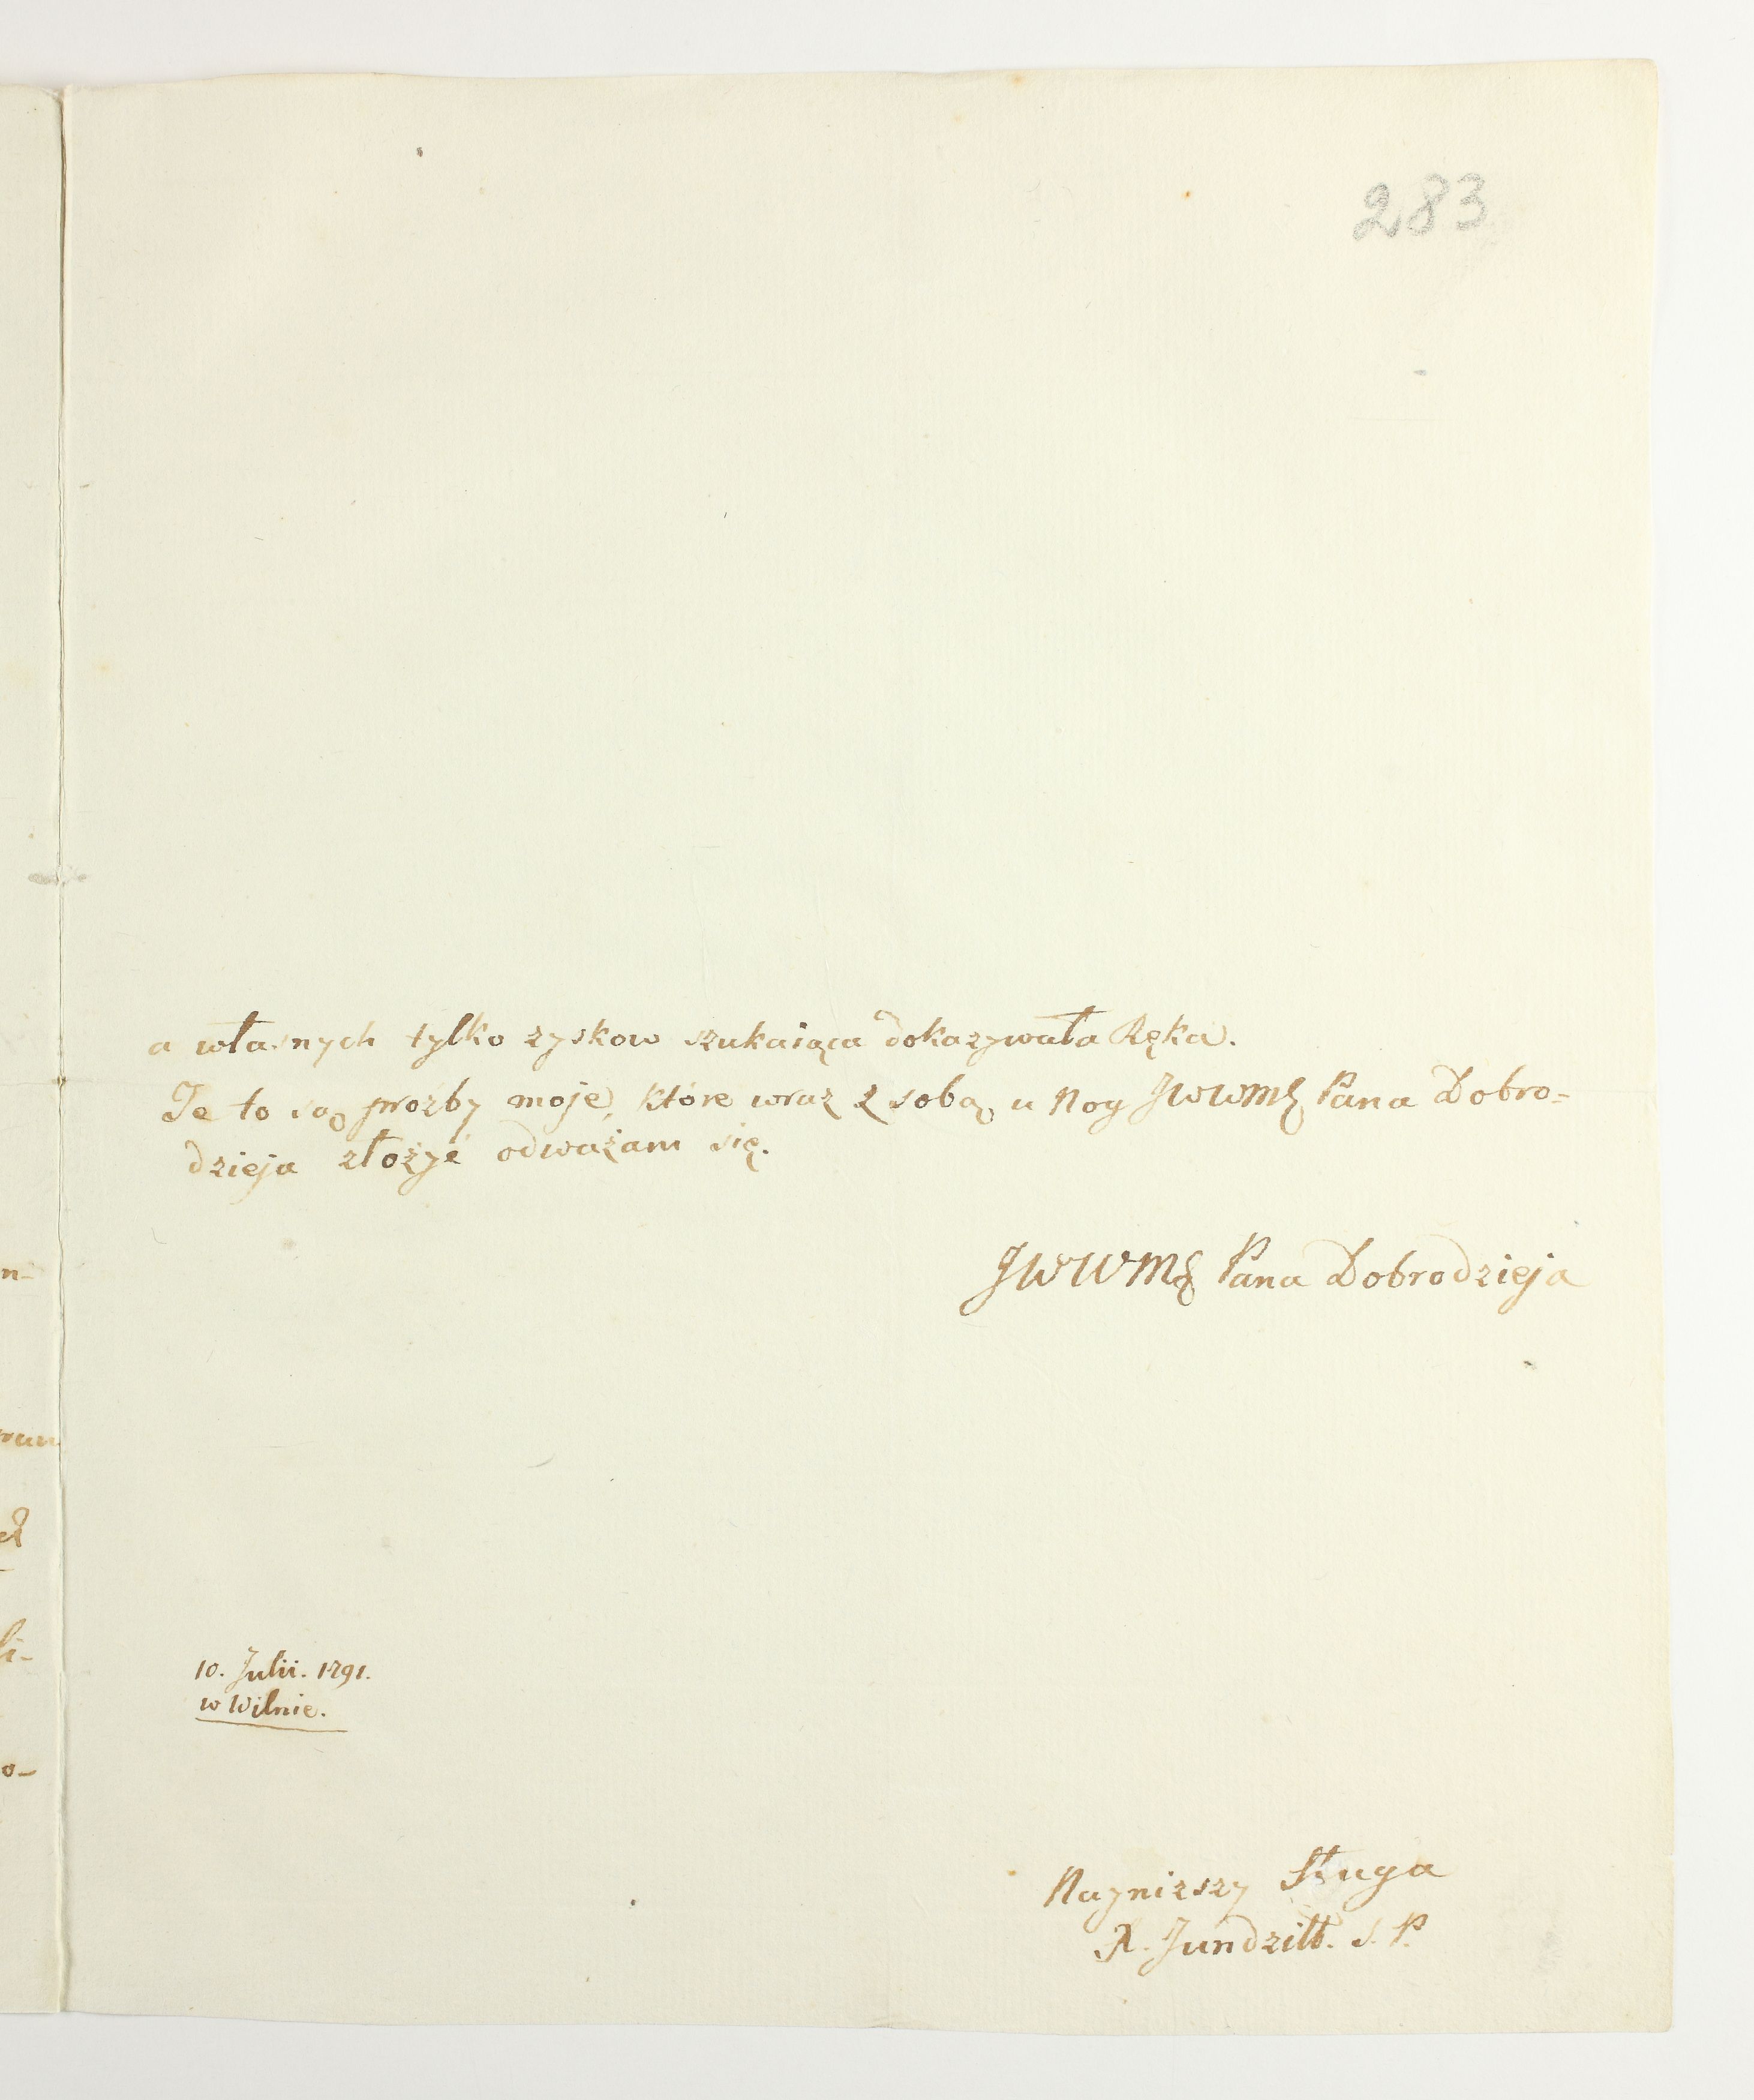 283
a własnych tylko zyskow szukaiąca dokazywała Ręka.
Te to są prozby moje, które wraz z sobą u Nog JWWMć Pana Dobro=
dzieja złożyć odważam się.
JWWMć Pana Dobrodzieja
10. Julii. 1791.
w Wilnie.
Nayniższy Sługa
X. Jundziłł. S. P.